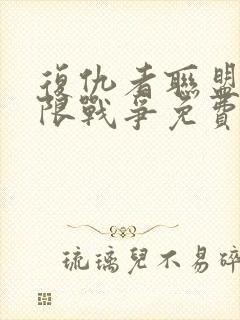 復仇者聯盟
限戰爭免費
琉璃兒不易碎